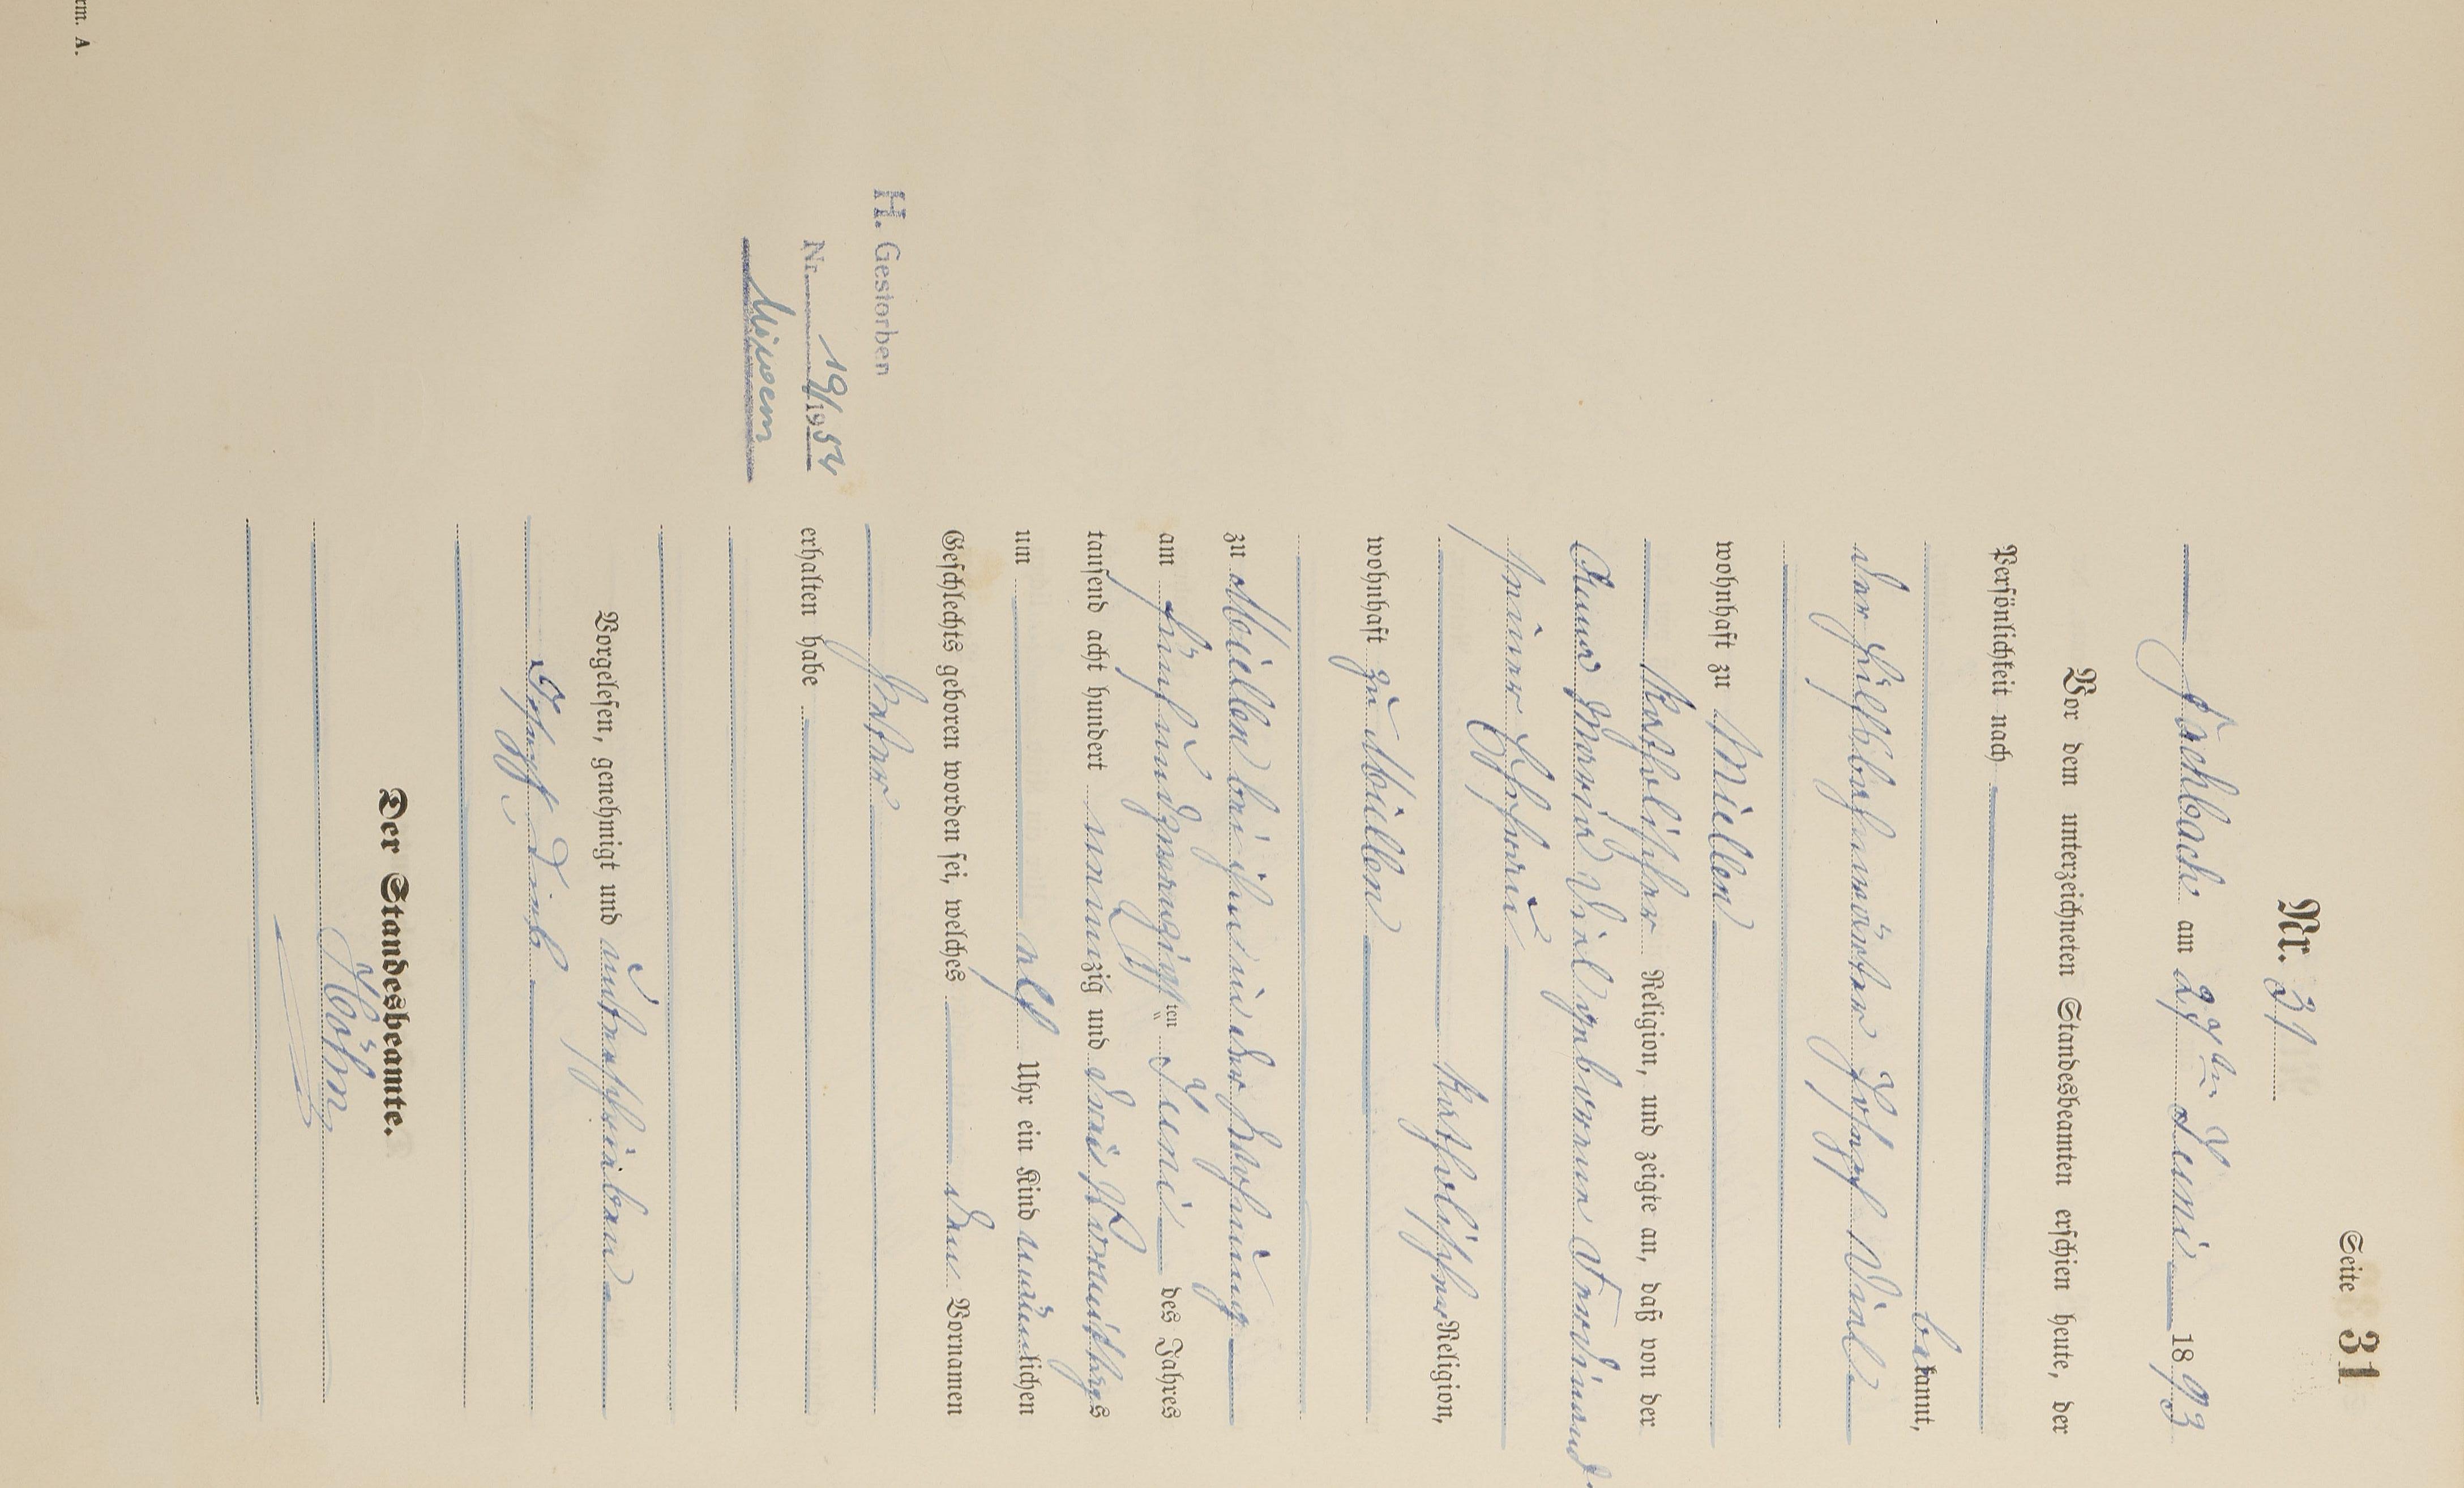 Seite 31
Nr. 31
Fachbach am 29ten Juni 1893
Vor dem unterzeichneten Standesbeamten erschien heute, der
Persönlichkeit nach
bekannt,
der Hülfsbahnwärter Joseph Diel
wohnhaft zu Miellen
katholischer Religion, und zeigte an, daß von der
Anna Maria Diel geborene Ferdinand
seiner Ehefrau
katholischer Religion,
wohnhaft zu Miellen
zu Miellen bei ihm in der Wohnung
am fünfundzwanzigsten Juni des Jahres
tausend acht hundert neunzig und drei Vormittags
um elf Uhr ein Kind männlichen
Geschlechts geboren worden sei, welches den Vornamen
Peter
erhalten habe
H. Gestorben
Nr. 19/1952
Vorgelesen, genehmigt und unterschrieben
Joseph Diel
Der Standesbeamte.